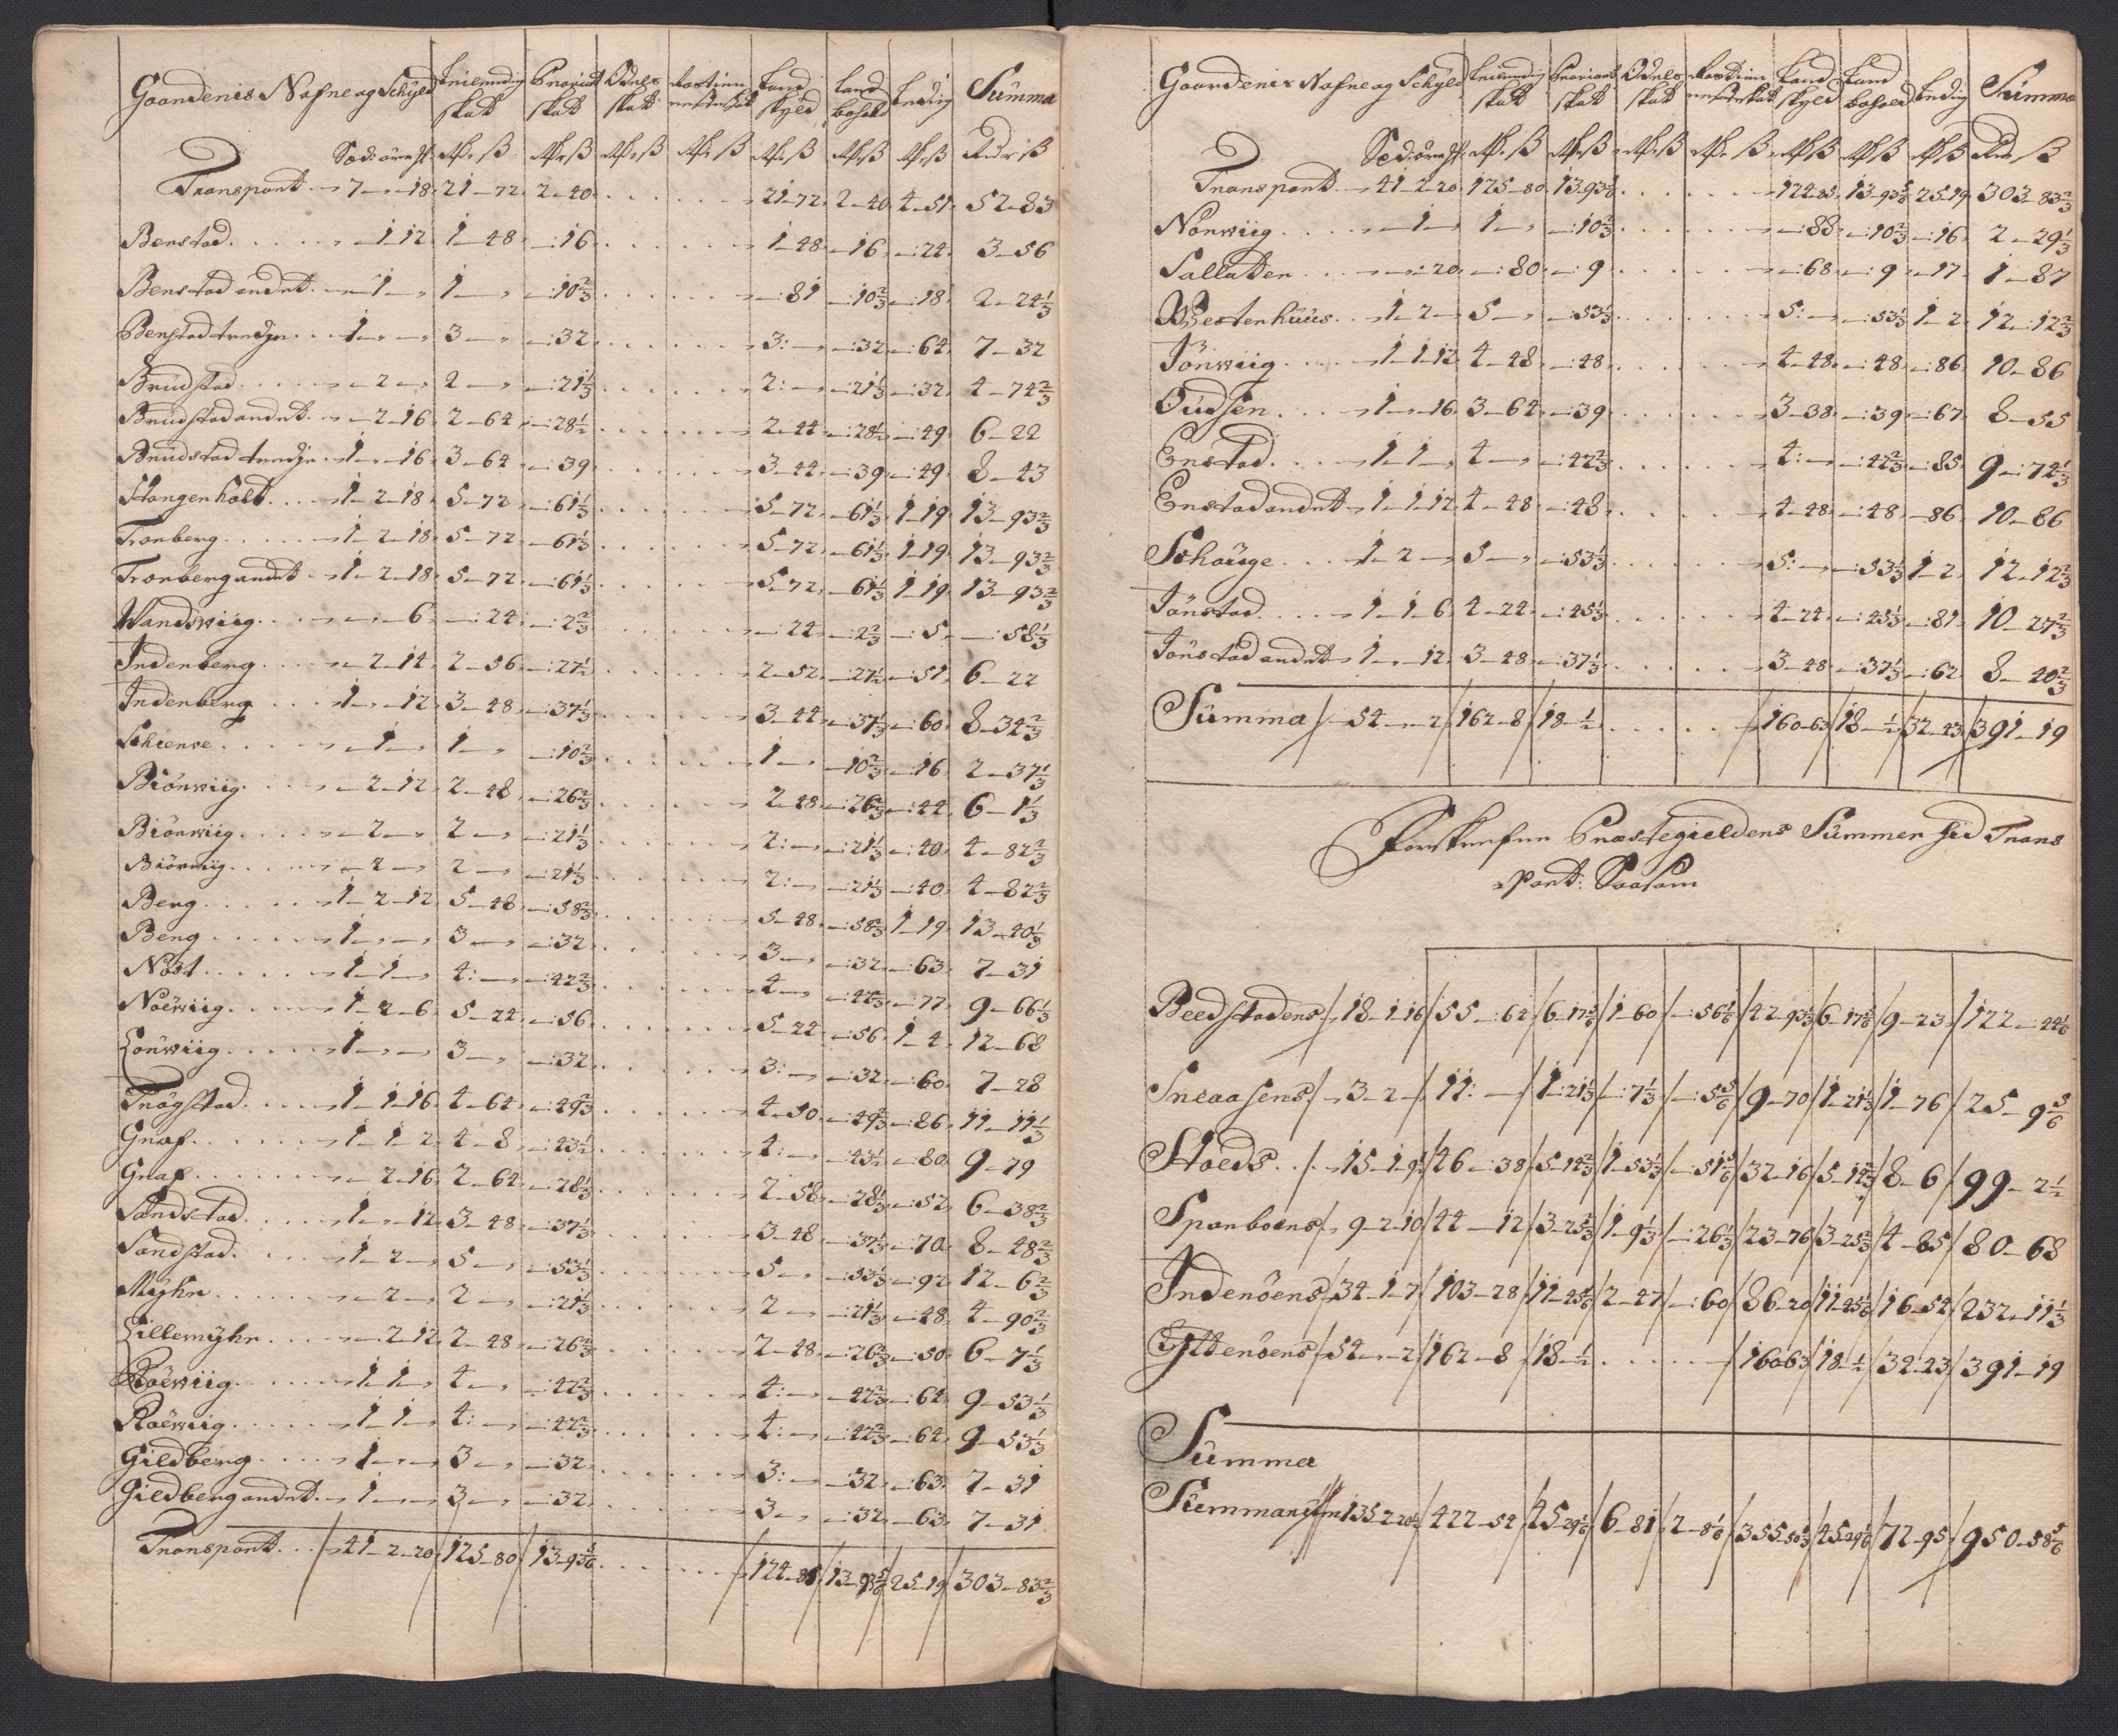 Gaardenis Nafne og Schyld Leilending skatt Proviant skatt Odels skatt Land skyld Land bohold Leding Summa
Transport 7 - - 18 21 - 72 2 - 40 21 - 72 2 - 40 4 - 51 52 - 83
Benstad 1 12 1 - 48 16 1 - 48 16 24 3 - 56
Benstad andet 1 1 10 2/3 81 10 2/3 18 2 - 24 1/3
Benstad tredje 1 3 32 3 32 64 7 - 32
Brudstad 2 2 21 1/3 2 21 1/3 32 4 - 74 2/3
Brudstad andet 2 - 16 2 - 64 28 1/2 2 - 44 28 1/2 49 6 - 22
Brudstad tredje 1 - - 16 3 - 64 39 3 - 44 39 49 8 - 43
Stangenholt 1 - 2 - 18 5 - 72 61 1/3 5 - 72 61 1/3 1 - 19 13 - 93 2/3
Tronberg 1 - 2 - 18 5 - 72 61 1/3 5 - 72 61 1/3 1 - 19 13 - 93 2/3
Tronberg andet 1 - 2 - 18 5 - 72 61 1/3 5 - 72 61 1/3 1 - 19 13 - 93 2/3
Wandswiig 6 24 2 2/3 24 2 2/3 5 58 1/3
Inderberg 2 - 14 2 - 56 27 1/2 2 - 52 27 1/2 51 6 - 22
Inderberg 1 - - 12 3 - 48 37 1/3 3 - 44 37 1/3 60 8 - 34 2/3
Schierve 1 1 10 2/3 1 10 2/3 16 2 - 37 1/3
Biörwiig 2 - 12 2 - 48 26 2/3 2 - 48 26 2/3 44 6 - 1 1/3
Biörwiig 2 2 21 1/3 2 21 1/3 40 4 - 82 2/3
Biörwiig 2 2 21 1/3 2 21 1/3 40 4 - 82 2/3
Berg 1 - 2 - 12 5 - 48 58 2/3 5 - 48 58 2/3 1 - 19 13 - 40 1/3
Berg 1 3 32 3 32 63 7 - 31
Nöst 1 - 1 4 42 2/3 4 42 2/3 77 9 - 66 1/3
Noëwiig 1 - 2 - 6 5 - 24 56 5 - 24 56 1 - 4 12 - 68
Lönwiig 1 3 32 3 32 60 7 - 28
Trögstad 1 - 1 - 16 4 - 64 49 2/3 4 - 50 49 2/3 86 11 - 11 1/3
Graf 1 - 1 - 2 4 - 8 43 1/2 4 43 1/2 80 9 - 79
Graf 2 - 16 2 - 64 28 1/3 2 - 58 28 1/3 52 6 - 38 2/3
Sandstad 1 - - 12 3 - 48 37 1/3 3 - 48 37 1/3 70 8 - 48 2/3
Sandstad 1 - 2 5 53 1/3 5 53 1/3 92 12 - 6 2/3
Myhre 2 2 21 1/3 2 21 1/3 48 4 - 90 2/3
Lillemyhr 2 - 12 2 - 48 26 2/3 2 - 48 26 2/3 50 6 - 7 1/3
Roëwiig 1 - 1 4 42 2/3 4 42 2/3 64 9 - 53 1/3
Roëwiig 1 - 1 4 42 2/3 4 42 2/3 64 9 - 53 1/3
Gildberg 1 3 32 3 32 63 7 - 31
Gieldberg andet 1 3 32 3 32 63 7 - 31
Transport 41 - 2 - 20 125 - 80 13 - 93 5/6 124 - 85 13 - 93 5/6 25 - 19 303 - 83 2/3
Gaardenis Nafne og Schyld Leilending skatt Proviant skatt Odels skatt Land skyld Land bohold Leding Summa
Transport 41 - 2 20 125 - 80 13 - 93 5/6 124 - 85 13 - 93 5/6 25 - 19 303 - 83 2/3
Norwiig 1 1 10 2/3 88 10 2/3 16 2 - 29 1/3
Sallatter 20 80 9 68 9 17 1 - 87
Westerhuus 1 - 2 5 53 1/3 5 53 1/3 1 - 2 12 - 12 2/3
Jörwiig 1 - 1 - 12 4 - 48 48 4 - 48 48 86 10 - 86
Oudsen 1 - - 16 3 - 64 39 3 - 38 39 67 8 - 55
Enstad 1 - 1 4 42 2/3 4 42 2/3 85 9 - 74 1/3
Enstad andet 1 - 1 - 12 4 - 48 48 4 - 48 48 86 10 - 86
Schouge 1 - 2 5 53 1/3 5 53 1/3 1 - 2 12 - 12 2/3
Jönstad 1 - 1 - 6 4 - 24 45 1/3 4 - 24 45 1/3 81 10 - 27 2/3
Jönstad andet 1 - - 12 3 - 48 37 1/3 3 - 48 37 1/3 62 8 - 40 2/3
Summa 54 - - 2 162 - 8 18 - 1/2 160 - 63 18 - 1/2 32 - 43 391 - 19
Forskrefne Præstegieldens Summer hid Trans
port: Saasom
Beedstadens 18 - 1 16 55 - 64 6 - 17 5/6 1 - 60 56 1/6 42 - 93 1/3 6 - 17 5/6 9 - 23 122 - 44 1/6
Sneaasens 3 - 2 11 1 - 21 1/3 7 1/3 5 5/6 9 - 70 1 - 21 1/3 1 - 76 25 - 9 5/6
Stoeds 15 - 1 - 9 1/2 46 - 38 5 - 14 2/3 1 - 53 1/3 51 5/6 32 - 16 5 - 14 2/3 8 - 6 99 - 2 1/2
Sparboens 9 - 2 - 10 44 - 12 3 - 25 2/3 1 - 9 1/3 26 1/3 23 - 76 3 - 25 2/3 4 - 85 80 - 68
Inderöens 34 - 1 - 7 103 - 28 11 - 45 5/6 2 - 47 60 86 - 20 11 - 45 5/6 16 - 54 232 - 11 1/3
Ytteröens 54 - - 2 162 - 8 18 - 1/2 160 - 63 18 - 1/2 32 - 43 391 - 19
Summa
Summarum 135 - 2 - 20 1/2 422 - 54 45 - 29 1/6 6 - 81 2 - 8 1/6 355 - 50 1/3 45 - 29 1/6 72 - 95 950 - 58 5/6